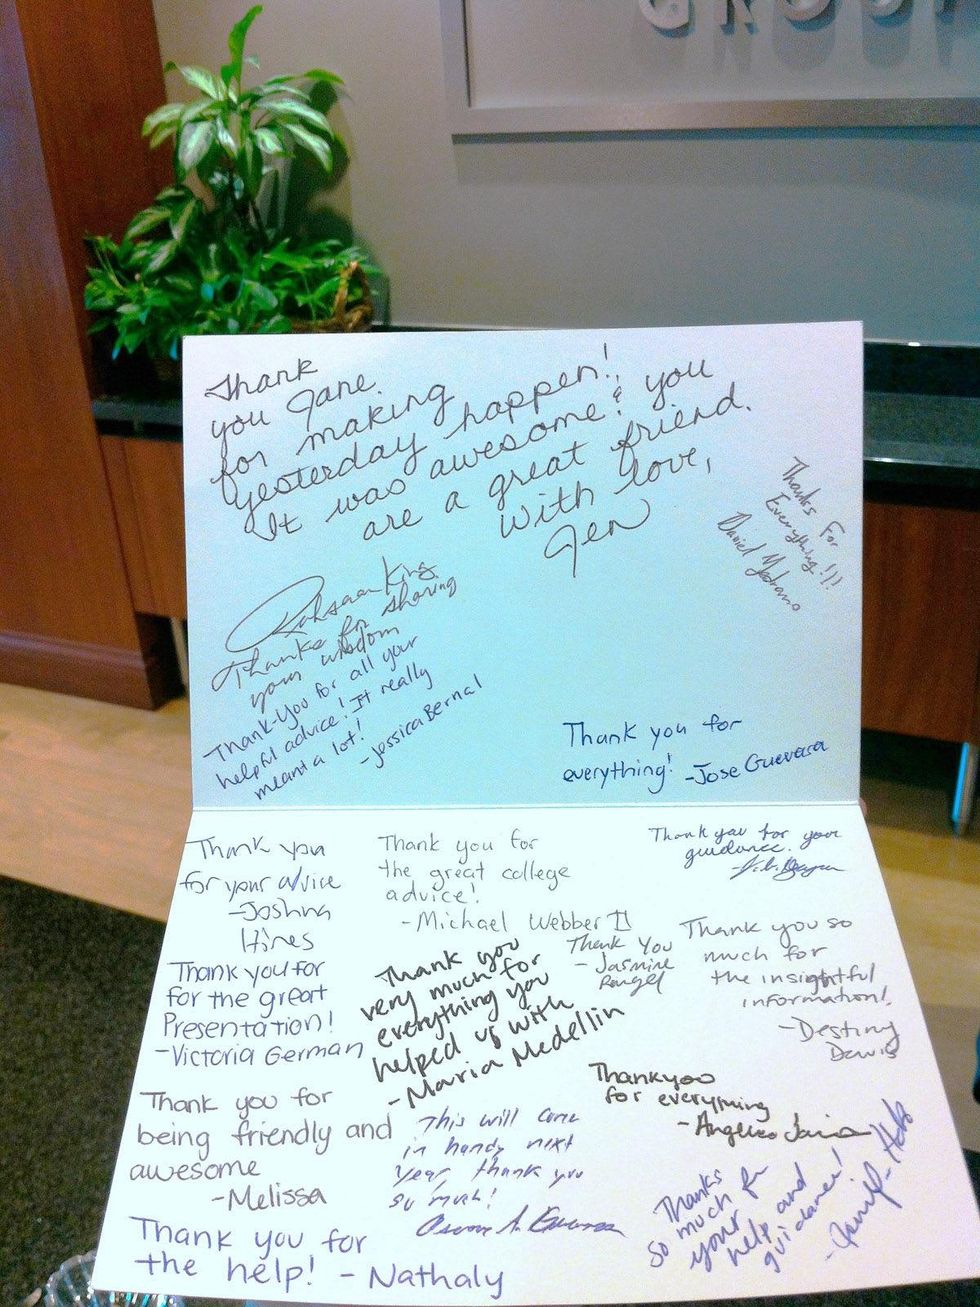 GROUP
Thank
you Jane.
for making
yesterday happen!,
It was awesome! & you
are a great friend.
With love,
Jen
Thanks For
Everything!!!
Daniel
Rahsaan King
Thanks for sharing
your wisdom
Thank-You for all your
helpful advice! It really
meant a lot!
-Jessica Bernal
Thank you for
everything! -Jose Guevara
Thank you
for your advice
-Joshua
Hines
Thank you for
the great college
advice!
-Michael Webber II
Thank you for your
guidance.
Thank you for
for the great
Presentation!
-Victoria German
Thank you
very much for
everything you
helped us with
-Maria Medellin
Thank You
-Jasmine
Rangel
Thank you so
much for
the insightful
information!
-Destiny
Davis
Thank you for
being friendly and
awesome
-Melissa
This will come
in handy next
year, thank you
so much!
Oscar A.
Thankyou
for everything
-Angelica
Thanks
so much for
your
help and
guidance!
Thank you for
the help! -Nathaly